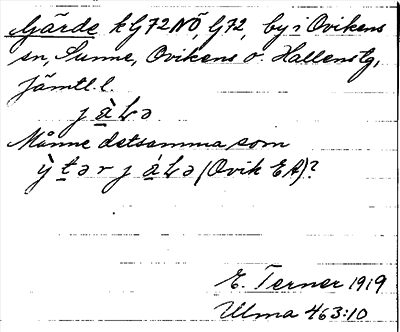 Gärde k G72NÖ, G72, by i Ovikens
sn, Sunne, Ovikens o. Hallens tg,
Jämtl. l.
j ä̀ L ə
Månne detsamma som
ỳ t ə r j ä́ L ə (Ovik EA)?
E. Terner 1919
Ulma 463:10